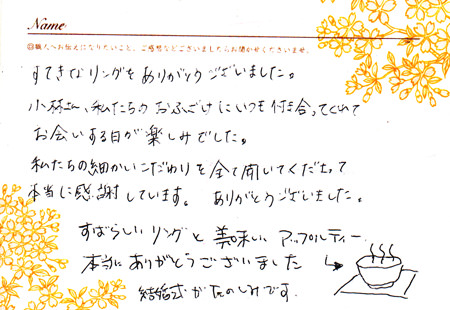 Name
職人へお伝えになりたいこと、ご感想などございましたらお聞かせくださいませ。
すてきなリングをありがとうございました。
小林さん、私たちのおふざけにいつも付き合ってくれて
お会いする日が楽しみでした。
私たちの細かいこだわりを全て聞いてくださって
本当に感謝しています。 ありがとうございました。
すばらしいリングと美味しいアップルティー
本当にありがとうございました
結婚式がたのしみです。